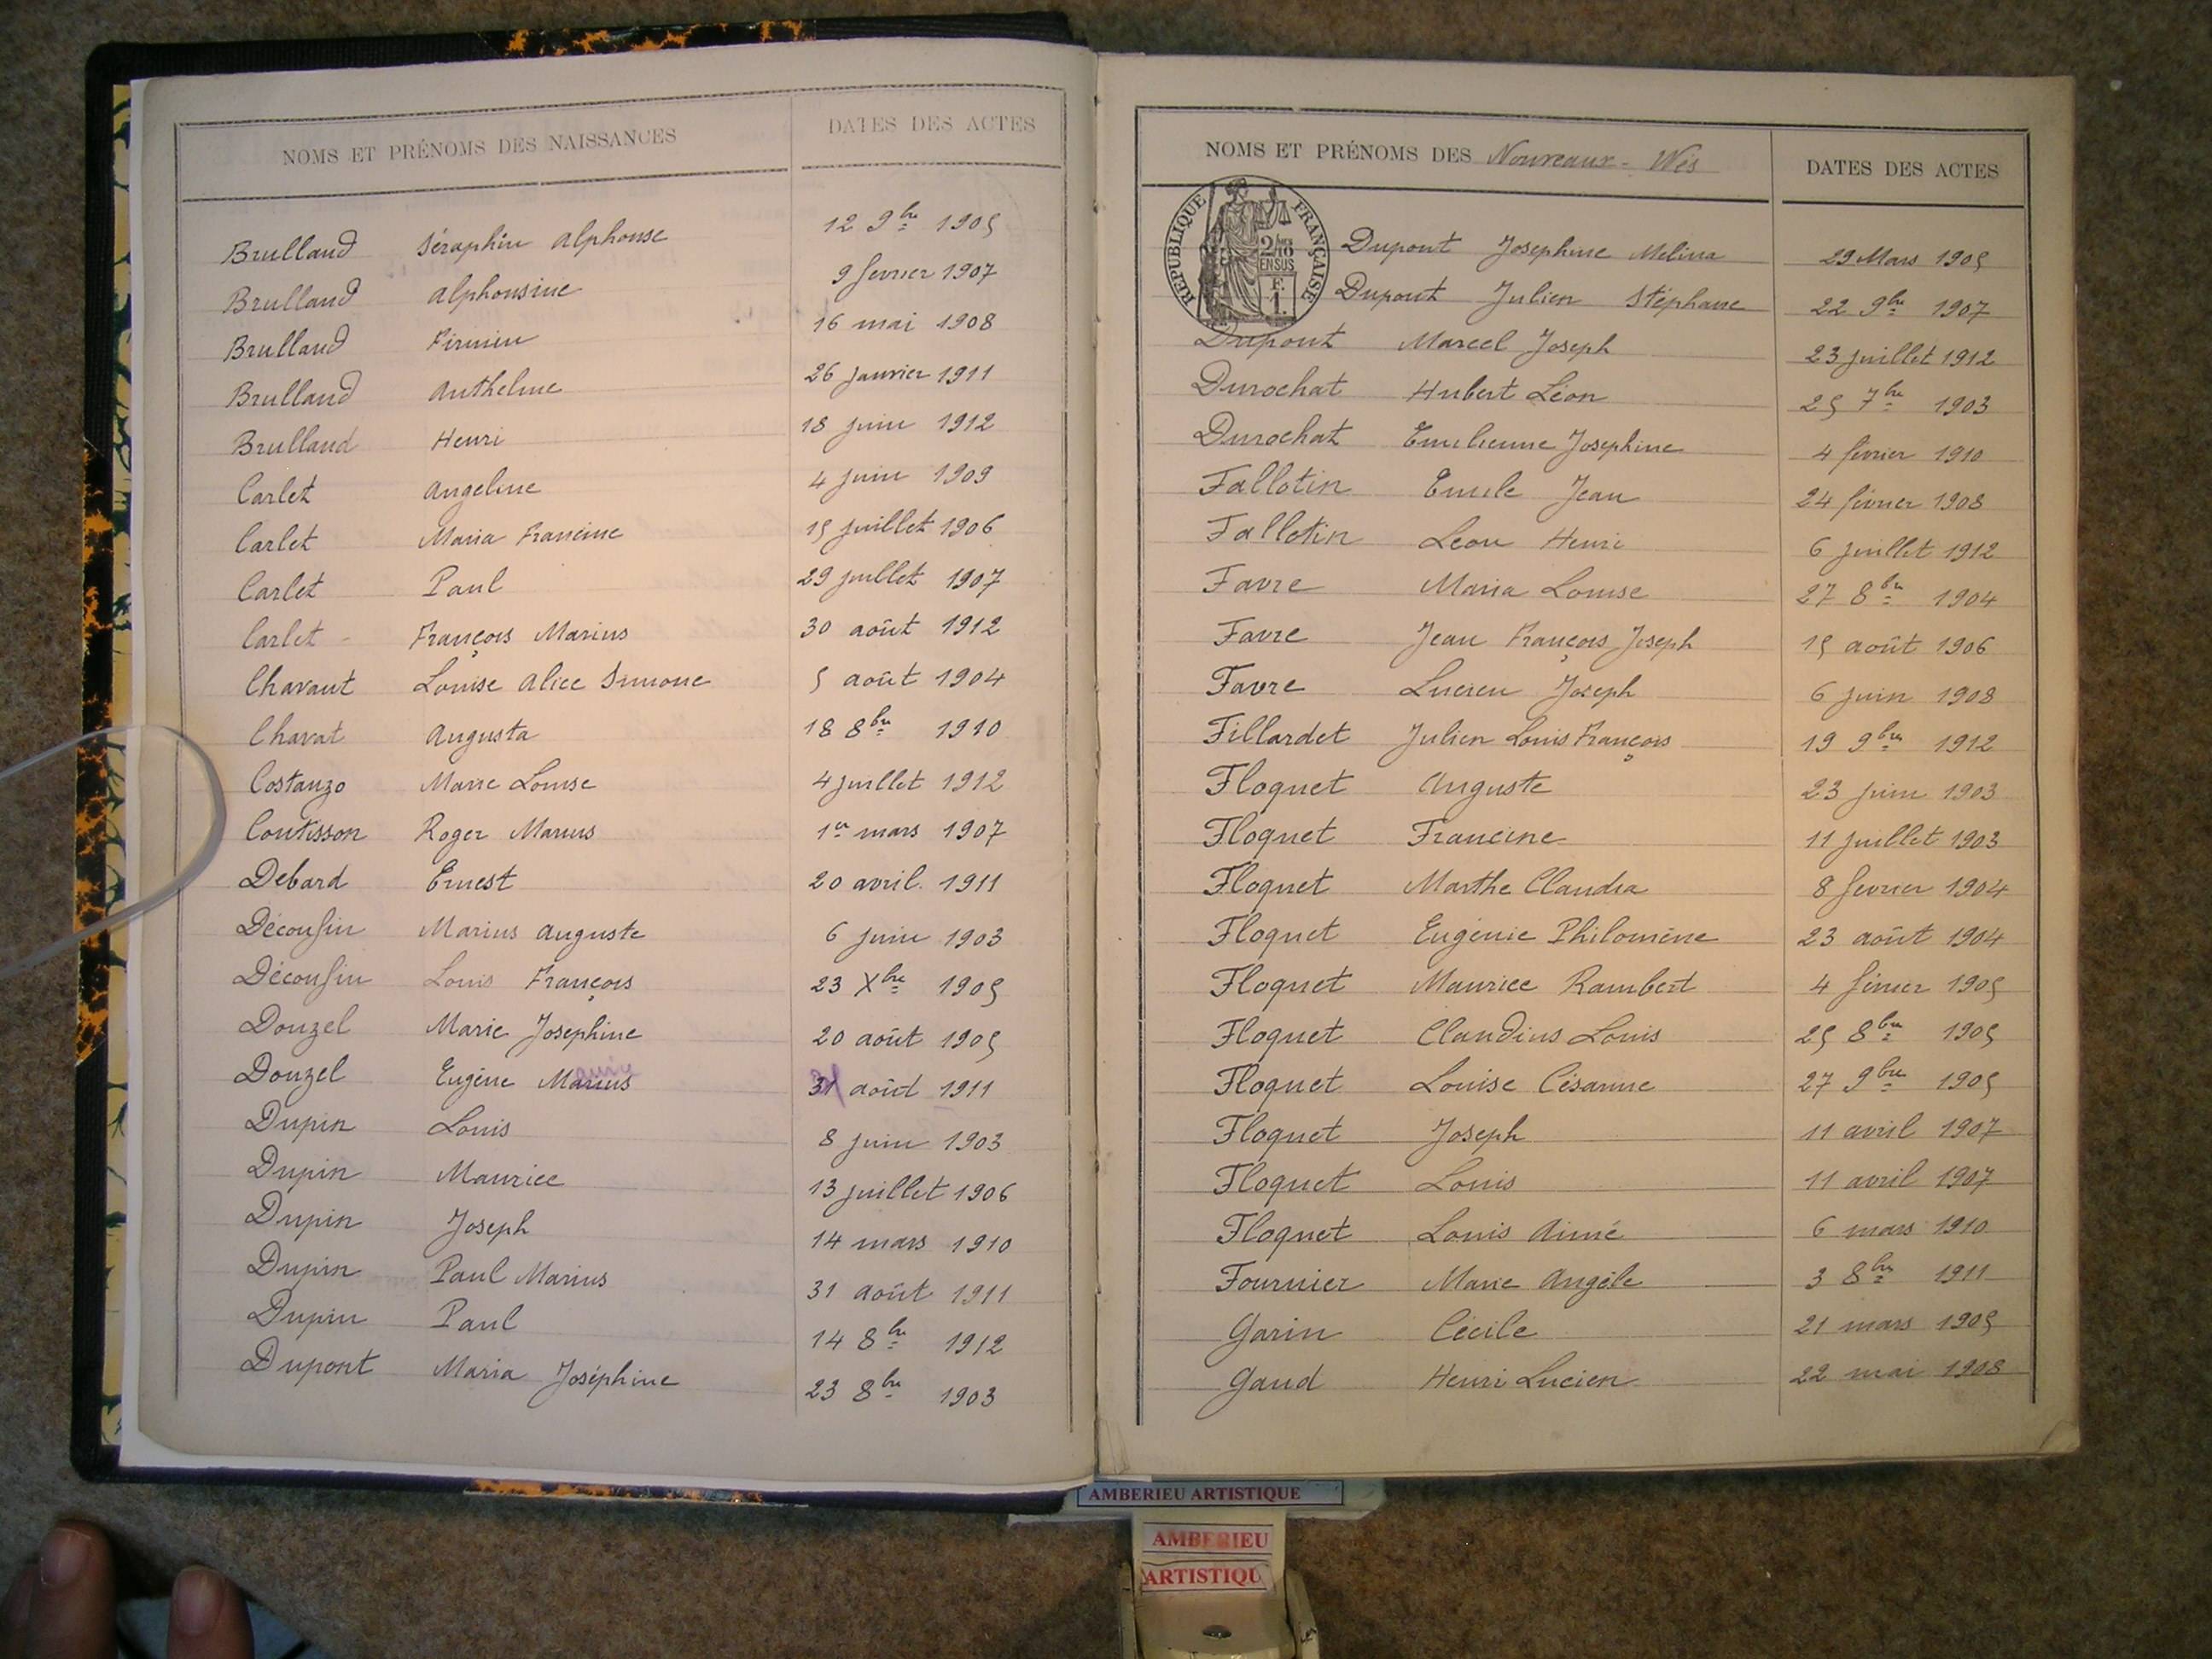 NOMS ET PRÉNOMS DES NAISSANCES DATES DES ACTES
Brulland Séraphin Alphonse 12 9bre 1905
Brulland Alphonsine 9 février 1907
Brulland Firmin 16 mai 1908
Brulland Anthelme 26 Janvier 1911
Brulland Henri 18 juin 1912
Carlet Angeline 4 juin 1909
Carlet Maria Francine 15 juillet 1906
Carlet Paul 29 juillet 1907
Carlet François Marius 30 août 1912
Chavant Louise Alice Simone 5 août 1904
Chavat Augusta 18 8bre 1910
Costanzo Marie Louise 4 juillet 1912
Coutisson Roger Marius 1er mars 1907
Debard Ernest 20 avril 1911
Décousin Marius Auguste 6 juin 1903
Décousin Louis François 23 Xbre 1905
Douzel Marie Josephine 20 août 1905
Douzel Eugène Marius 31 août 1911
Dupin Louis 8 juin 1903
Dupin Maurice 13 juillet 1906
Dupin Joseph 14 mars 1910
Dupin Paul Marius 31 août 1911
Dupin Paul 14 8bre 1912
Dupont Maria Joséphine 23 8bre 1903
NOMS ET PRÉNOMS DES Nouveaux-Nés DATES DES ACTES
RÉPUBLIQUE FRANÇAISE
2/10
EN SUS
F.
1.
Dupont Josephine Melina 29 Mars 1905
Dupont Julien Stéphane 22 9bre 1907
Dupont Marcel Joseph 23 juillet 1912
Durochat Hubert Léon 25 7bre 1903
Durochat Emilienne Josephine 4 février 1910
Fallotin Emile Jean 24 février 1908
Fallotin Leon Henri 6 juillet 1912
Favre Maria Louise 27 8bre 1904
Favre Jean François Joseph 15 août 1906
Favre Lucien Joseph 6 juin 1908
Fillardet Julien Louis François 19 9bre 1912
Floquet Auguste 23 juin 1903
Floquet Francine 11 juillet 1903
Floquet Marthe Claudia 8 février 1904
Floquet Eugénie Philomène 23 août 1904
Floquet Maurice Rambert 4 février 1905
Floquet Claudius Louis 25 8bre 1905
Floquet Louise Césarine 27 9bre 1905
Floquet Joseph 11 avril 1907
Floquet Louis 11 avril 1907
Floquet Louis Aimé 6 mars 1910
Fournier Marie Angèle 3 8bre 1911
Garin Cécile 21 mars 1905
Gaud Henri Lucien 22 mai 1908
AMBERIEU ARTISTIQUE
AMBERIEU
ARTISTIQU